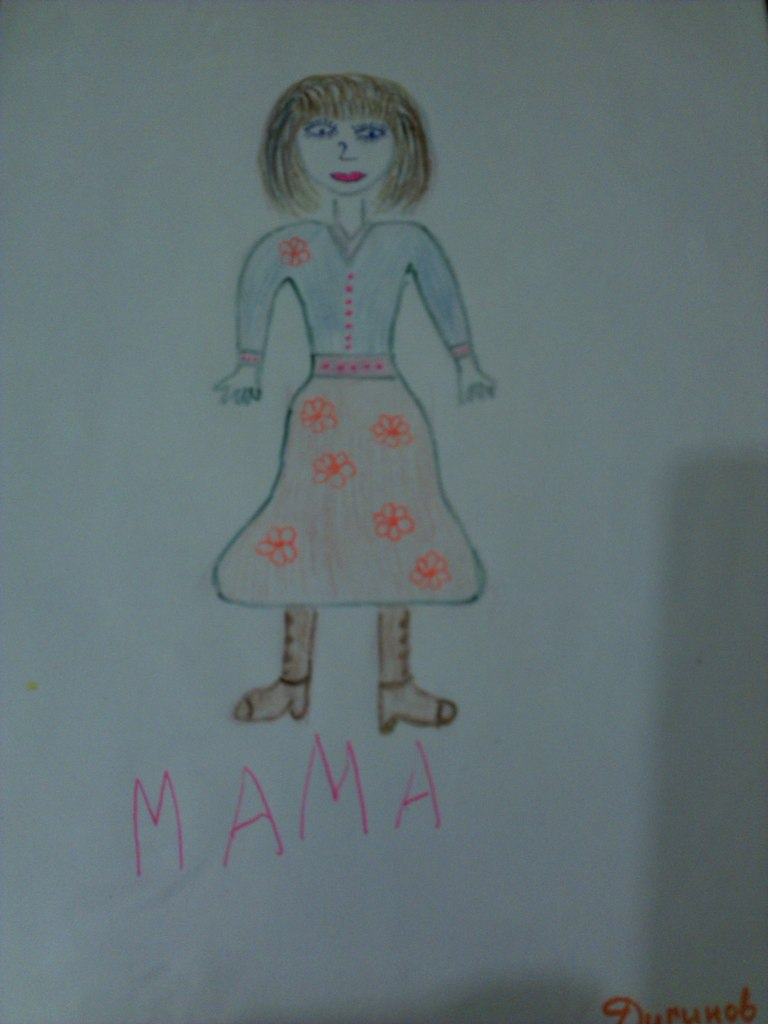 МАМА
Дигинов